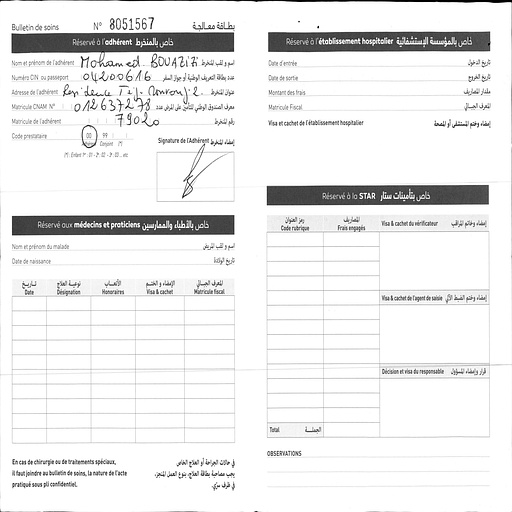 Bulletin de soins N° 8051567 بطاقة معالجة
Réservé à l'adhérent خاص بالمنخرط
Nom et prénom de l'adhérent Mohamed BOUAZIZI اسم و لقب المنخرط
Numéro CIN ou passeport 04200616 عدد بطاقة التعريف الوطنية أو جواز السفر
Adresse de l'adhérent Residence عنوان المنخرط
Matricule CNAM N° 012637278 معرف الصندوق الوطني للتأمين على المرض عدد
Matricule de l'adhérent 79020 رقم المنخرط
Code prestataire 00 99
Adhérent Conjoint (*)
(*) : Enfant 1er : 01 - 2e : 02 - 3e : 03 ... etc
Signature de l'Adhérent إمضاء المنخرط
Réservé aux médecins et praticiens خاص بالأطباء والممارسين
Nom et prénom du malade اسم و لقب المريض
Date de naissance تاريخ الولادة
تاريخ نوعية العلاج الأتعاب الإمضاء و الختم المعرف الجبائي
Date Désignation Honoraires Visa & cachet Matricule fiscal
En cas de chirurgie ou de traitements spéciaux,
il faut joindre au bulletin de soins, la nature de l'acte
pratiqué sous pli confidentiel.
في حالات الجراحة أو العلاج الخاص
يجب مصاحبة بطاقة العلاج، بنوع العمل المنجز،
في ظرف سري.
Réservé à l'établissement hospitalier خاص بالمؤسسة الإستشفائية
Date d'entrée تاريخ الدخول
Date de sortie تاريخ الخروج
Montant des frais مقدار المصاريف
Matricule Fiscal المعرف الجبائي
Visa et cachet de l'établissement hospitalier إمضاء وختم المستشفى أو المصحة
Réservé à la STAR خاص بتأمينات ستار
رمز العنوان المصاريف
Code rubrique Frais engagés
Visa & cachet du vérificateur إمضاء وخاتم المراقب
Visa & cachet de l'agent de saisie إمضاء وختم الضبط الآلي
Décision et visa du responsable قرار وإمضاء المسؤول
Total الجملة
OBSERVATIONS